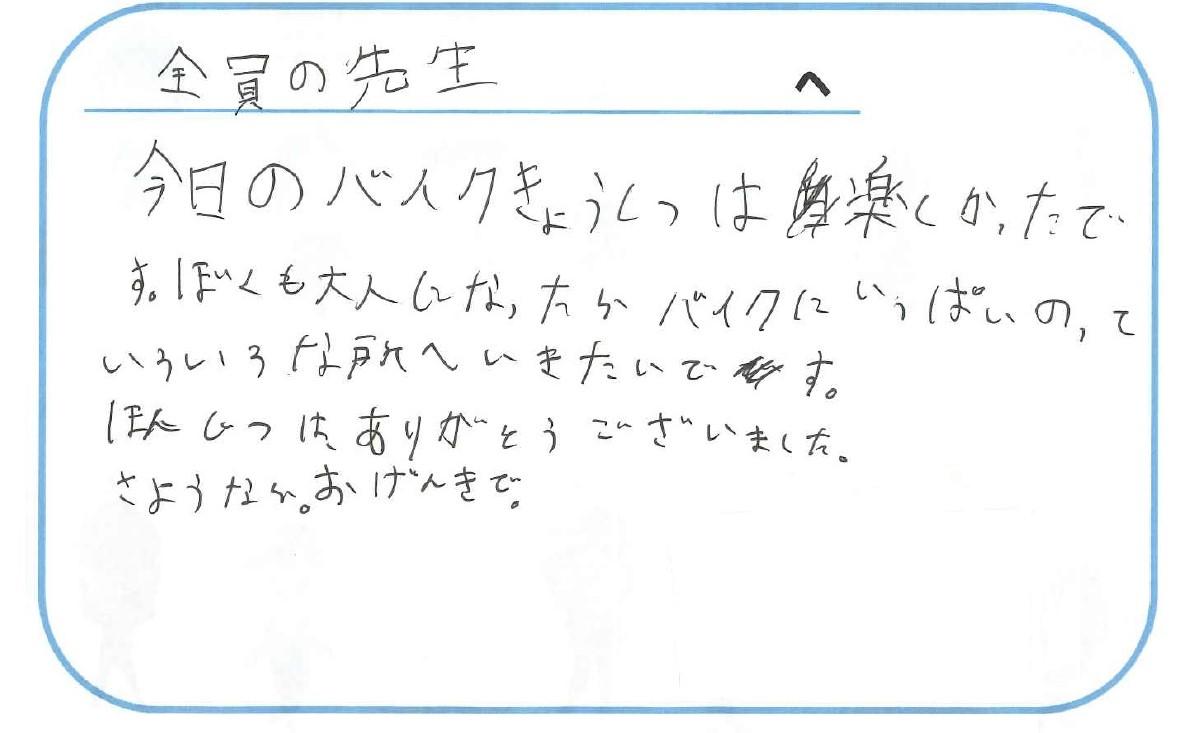 全員の先生 へ
今日のバイクきょうしつは楽しかったで
す。ぼくも大人になったらバイクにいっぱいのって
いろいろな所へいきたいです。
ほんじつは、ありがとうございました。
さようなら。おげんきで。